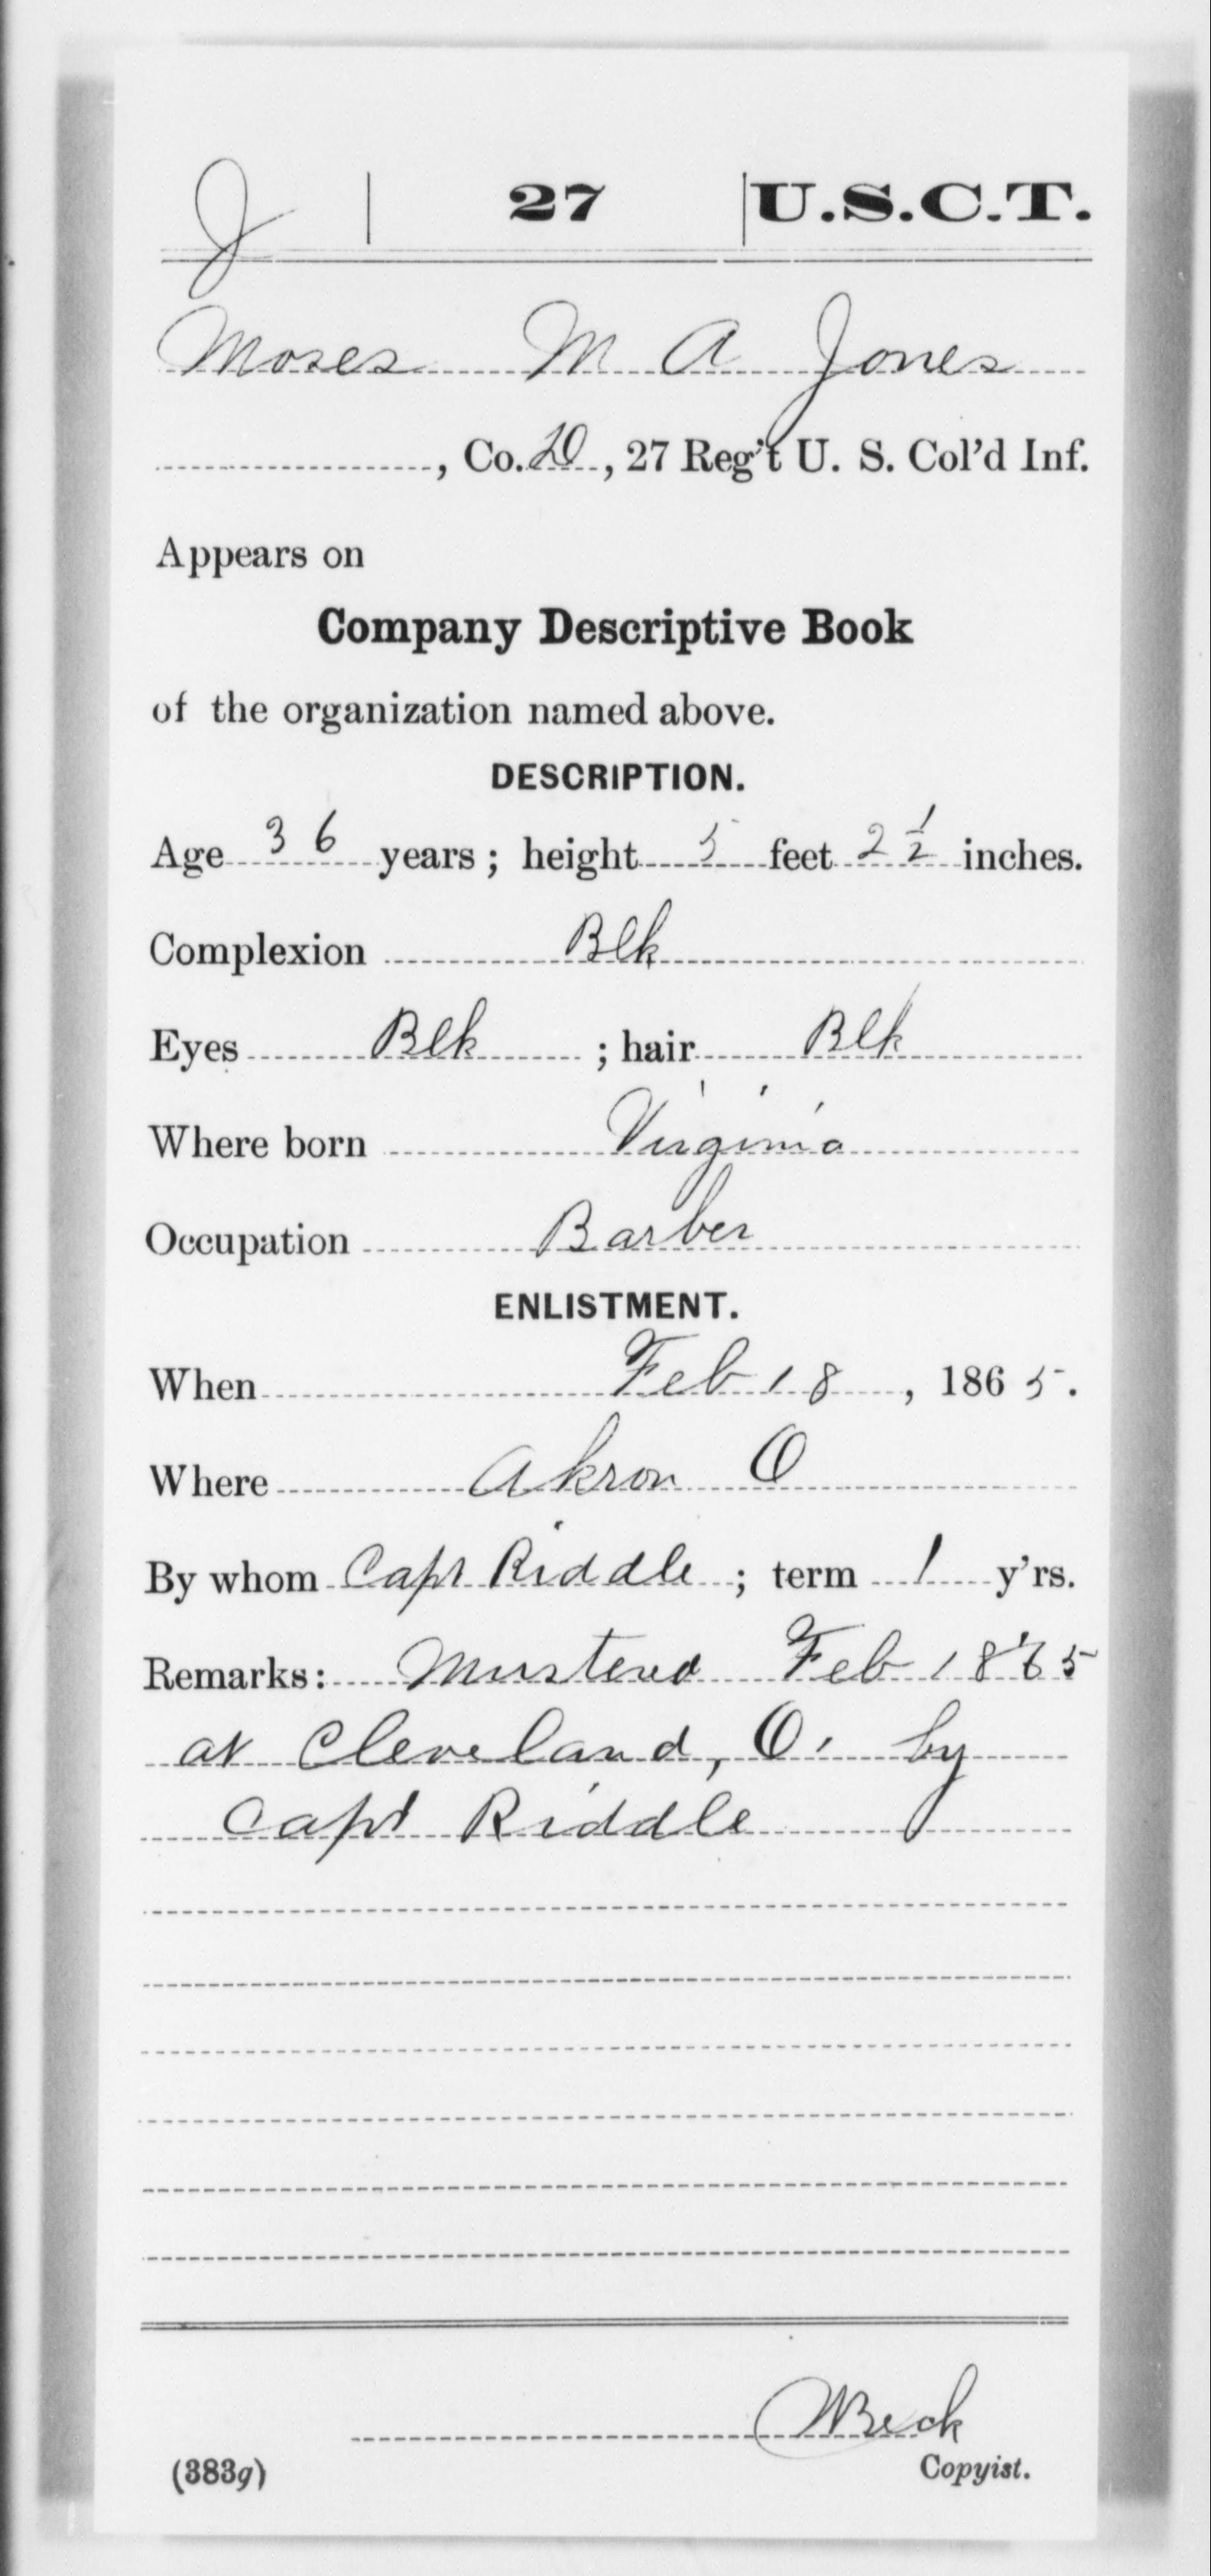 J | 27 | U.S.C.T.
Moses M A Jones
, Co. D, 27 Reg't U. S. Col'd Inf.
Appears on
Company Descriptive Book
of the organization named above.
DESCRIPTION.
Age 36 years; height 5 feet 2 1/2 inches.
Complexion Blk
Eyes Blk ; hair Blk
Where born Virginia
Occupation Barber
ENLISTMENT.
When Feb 18, 1865.
Where Akron O
By whom Capt Riddle; term 1 y'rs.
Remarks: Mustered Feb 18 '65
at Cleveland, O. by
Capt Riddle
Beck
(383g) Copyist.